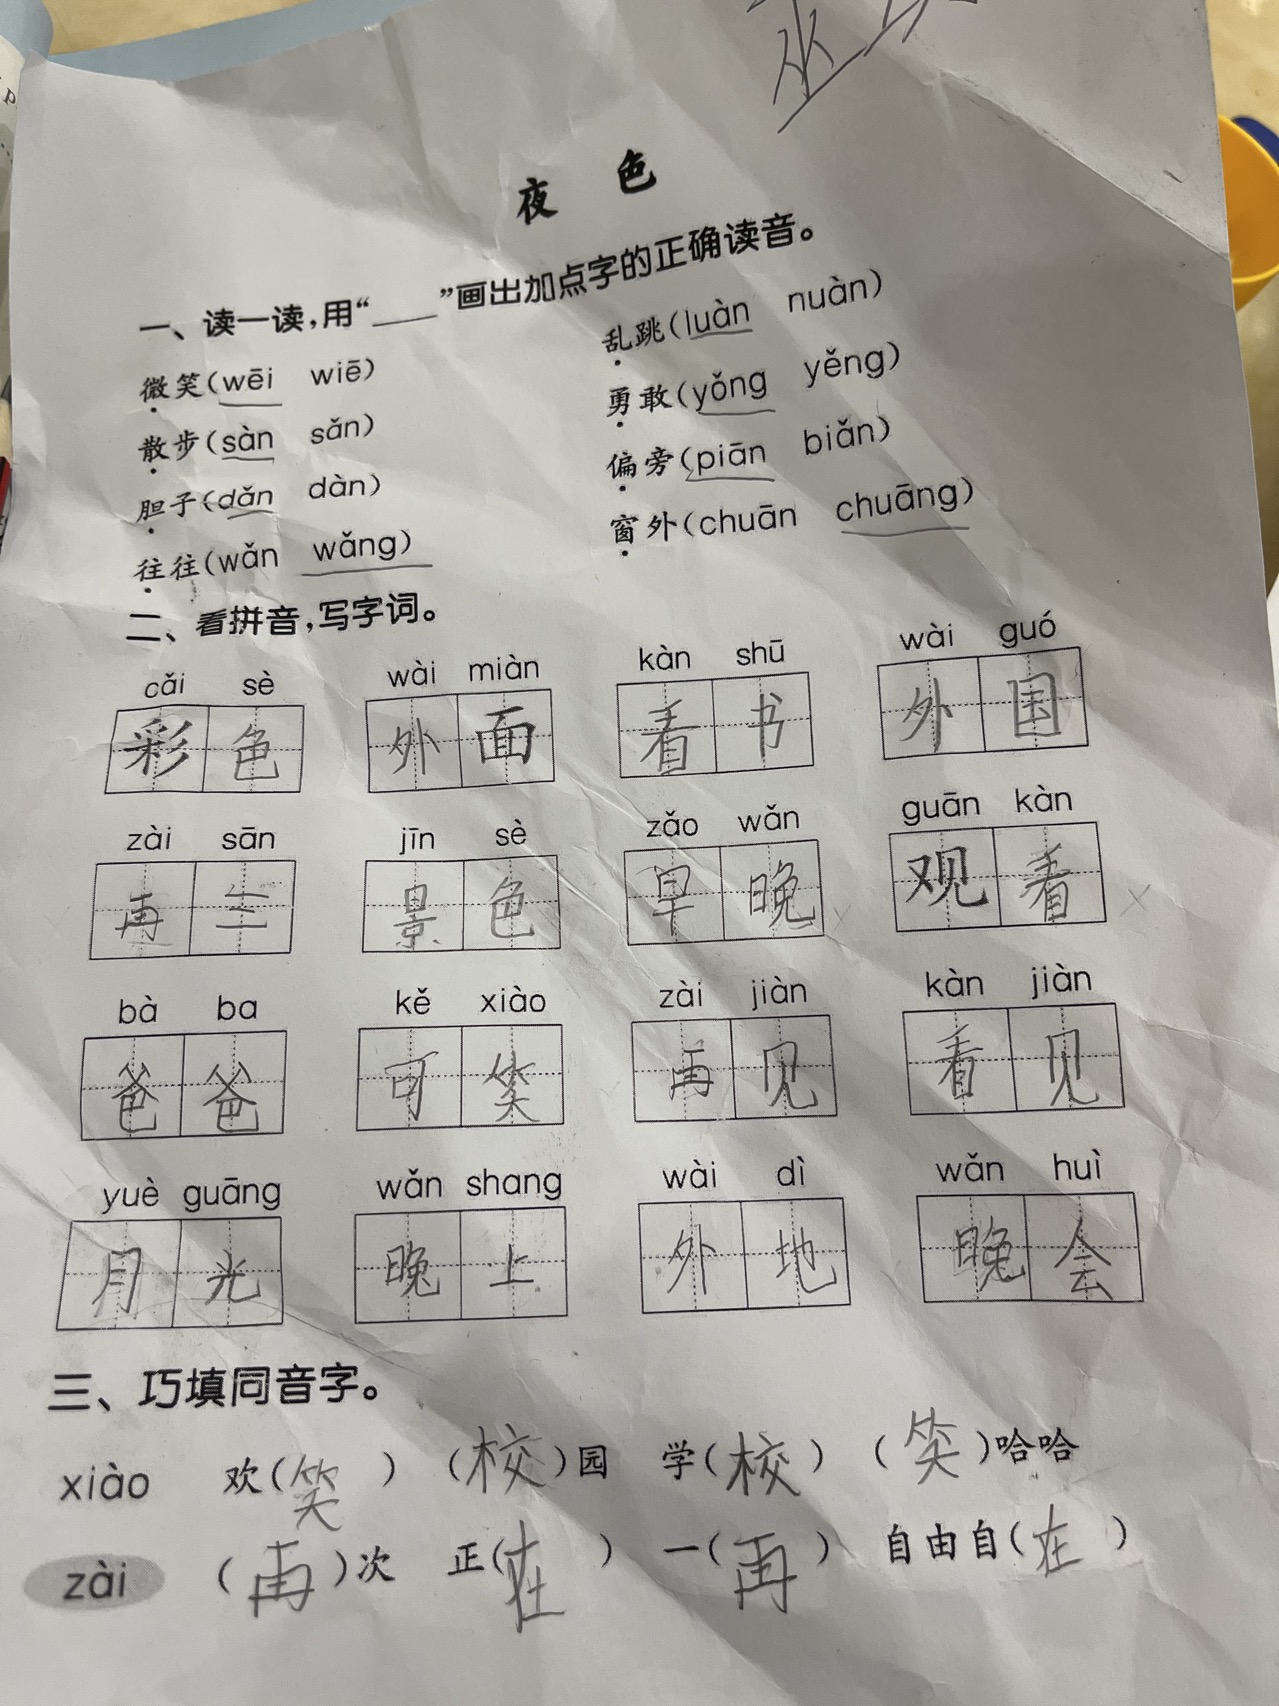 夜 色
一、读一读,用“____”画出加点字的正确读音。
微笑(wēi wiē) 乱跳(luàn nuàn)
散步(sàn sǎn) 勇敢(yǒng yěng)
胆子(dǎn dàn) 偏旁(piān biǎn)
往往(wǎn wǎng) 窗外(chuān chuāng)
二、看拼音,写字词。
cǎi sè wài miàn kàn shū wài guó
彩色 外面 看书 外国
zài sān jǐn sè zǎo wǎn guān kàn
再三 景色 早晚 观看
bà ba kě xiào zài jiàn kàn jiàn
爸爸 可笑 再见 看见
yuè guāng wǎn shang wài dì wǎn huì
月光 晚上 外地 晚会
三、巧填同音字。
xiào 欢(笑) (校)园 学(校) (笑)哈哈
zài (再)次 正(在) 一(再) 自由自(在)